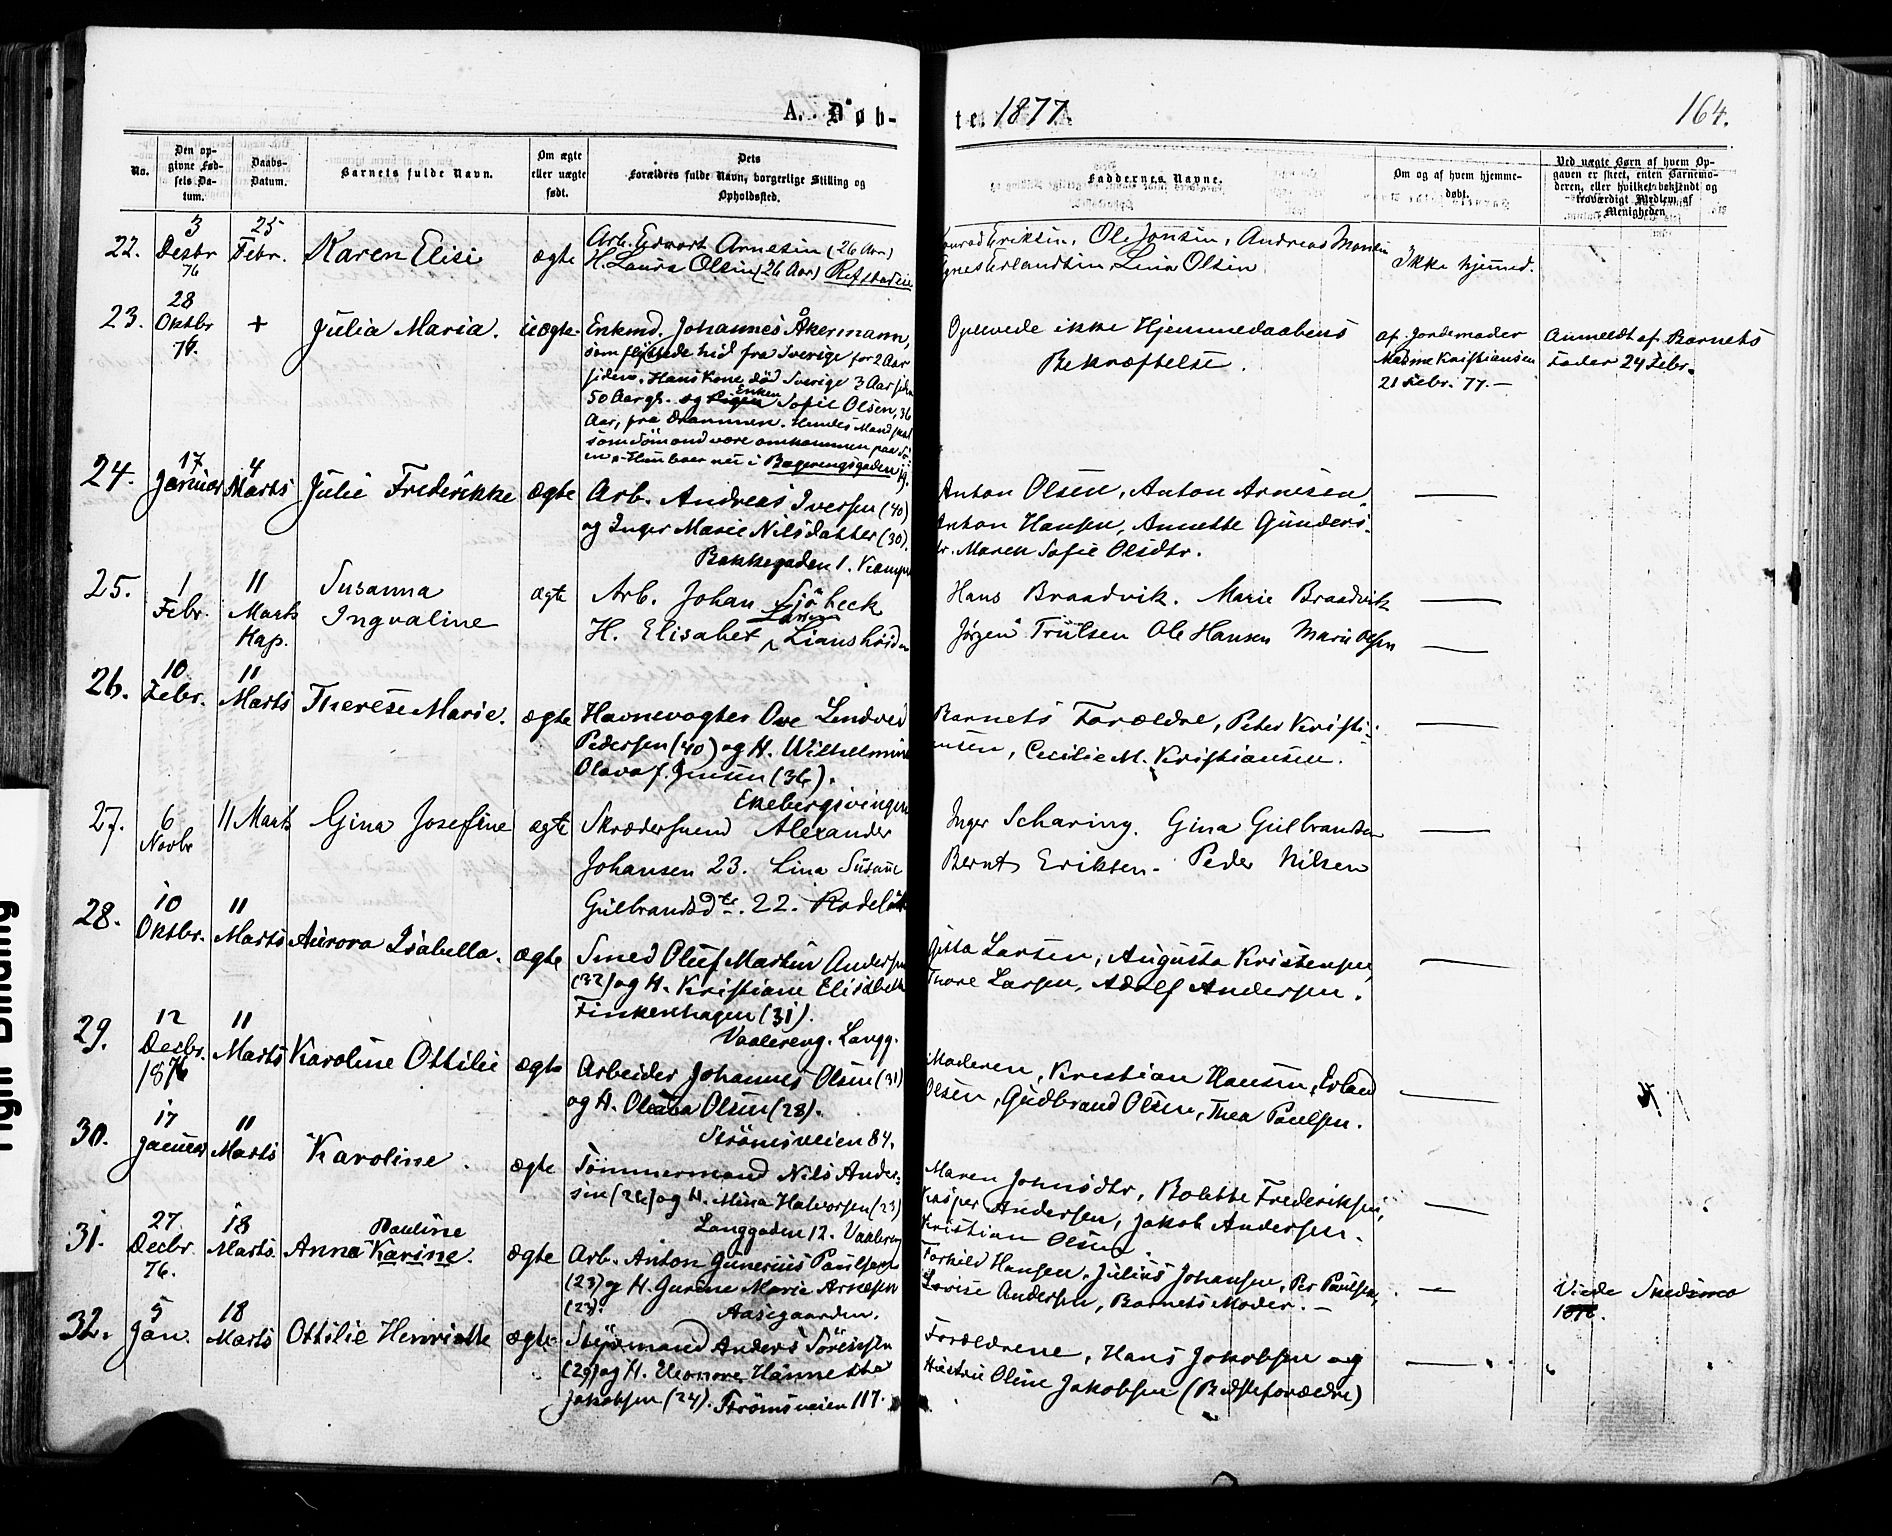 A. Døb-
te. 1877.
164.
No.
Den op-
givne Fød-
sels Da-
tum.
Daabs-
Datum.
Barnets fulde Navn.
Om ægte
eller uægte
født.
Dets
Forældres fulde Navn, borgerlige Stilling og
Opholdssted.
Faddernes Navne.
Om og af hvem hjemme-
døbt.
Ved uægte Børn af hvem Op-
gaven er skeet, enten Barnemo-
deren, eller hvilket bekjendt og
troværdigt Medlem af
Menigheden.
22.
3
Desbr
76
25
Febr.
Karen Elise
ægte
Arb. Edvart Arnesen (26 Aar)
H. Laura Olsen (26 Aar)
Eriksen, Ole Jonsen, Andreas
Erlandsen, Lina Olsen
Ikke hjemmed.
23.
28
Oktbr
76.
+
Julia Maria.
uægte
Enkmd. Johannes Åkermann,
som flyttede hid fra Sverige for 2 Aar
siden. Hans Kone død Sverige 3 Aar siden
50 Aar gl. og Enken Sofie Olsen, 36
Aar, fra Drammen. Hendes Mand skal
som Sømand være omkommen paa Sø-
en. Hun boer nu i
Oplevede ikke Hjemmedaabens
Bekræftelse.
af Jordemoder
Madme Kristiansen
21 Febr. 77. —
Anmeldt af Barnets
Fader 24 Febr.
24.
17
Januar
4
Marts
Julie Frederikke
ægte
Arb. Andreas Iversen (40)
og Inger Marie Nilsdatter (30).
Bakkegaden 1. Kampen
Anton Olsen, Anton Arnesen
Anton Hansen, Annette Gunders-
dr. Maren Sofie Olsdtr.
25.
1
Febr.
11
Marts
Kap.
Susanna
Ingvaline
ægte
Arb. Johan Sjöbeck
H. Elisabet
Hans Braadvik. Marie Braadvik
Jørgen Trulsen Ole Hansen Marie Olsen
26.
10
Febr.
11
Marts
Therese Marie.
ægte
Havnevogter Ove Lindved
Pedersen (40) og H. Wilhelmine
Olava f. Jensen (36).
Ekebergsvingen
Barnets Forældre, Peter Kristi-
ansen, Cecilie M. Kristiansen.
27.
6
Novbr
11 Marts
Gina Josefine
ægte
Skrædersvend Alexander
Johansen 23. Lina Susanne
Gulbrandsdtr. 22. Rodeløk
Inger Scharing. Gina Gulbrandsen
Bernt Eriksen. Peder Nilsen
28.
10
Oktbr.
11
Marts
Aurora Isabella.
ægte
Smed Oluf Martin Andersen
(32) og H. Kristiane Elisabeth
Finkenhagen (31).
Vaalereng. Langg.
Gitta Larsen, Augusta Kristensen,
Thore Larsen, Adolf Andersen.
29.
12
Decbr.
1876
11
Marts
Karoline Ottilie
ægte
Arbeider Johannes Olsen (31)
og H. Oleaba Olsen (28).
Strömsveien 84.
Moderen, Kristian Hansen, Erland
Olsen, Gudbrand Olsen, Thea Paulsen.
30.
17
Januar
11
Marts
Karoline.
ægte
Tömmermand Nils Ander-
sen (26) og H. Mina Halvorsen (23)
Langgaden 12. Vaalereng
Maren Johnsdtr, Bolette Frederiksen,
Kasper Andersen, Jakob Andersen.
Kristian Olsen.
31.
27
Decbr.
76.
18
Marts
Pauline
Anna Karine.
ægte
Arb. Anton Gunerius Paulsen
(23) og H. Gurine Marie Arnesen
(23).
Aasegaarden.
Torkild Hansen, Julius Johansen, Per Paulsen,
Lovise Andersen, Barnets Moder. —
Viede Skedsmo
1876.
32.
5
Jan.
18
Marts
Ottilie Henriette
ægte
Styrmand Anders Sörensen
(29) og H. Eleonore Hannetta
Jakobsen (24). Strömsveien 117.
Forældrene, Hans Jakobsen og
Hustru Oline Jakobsen (Bedsteforældre)